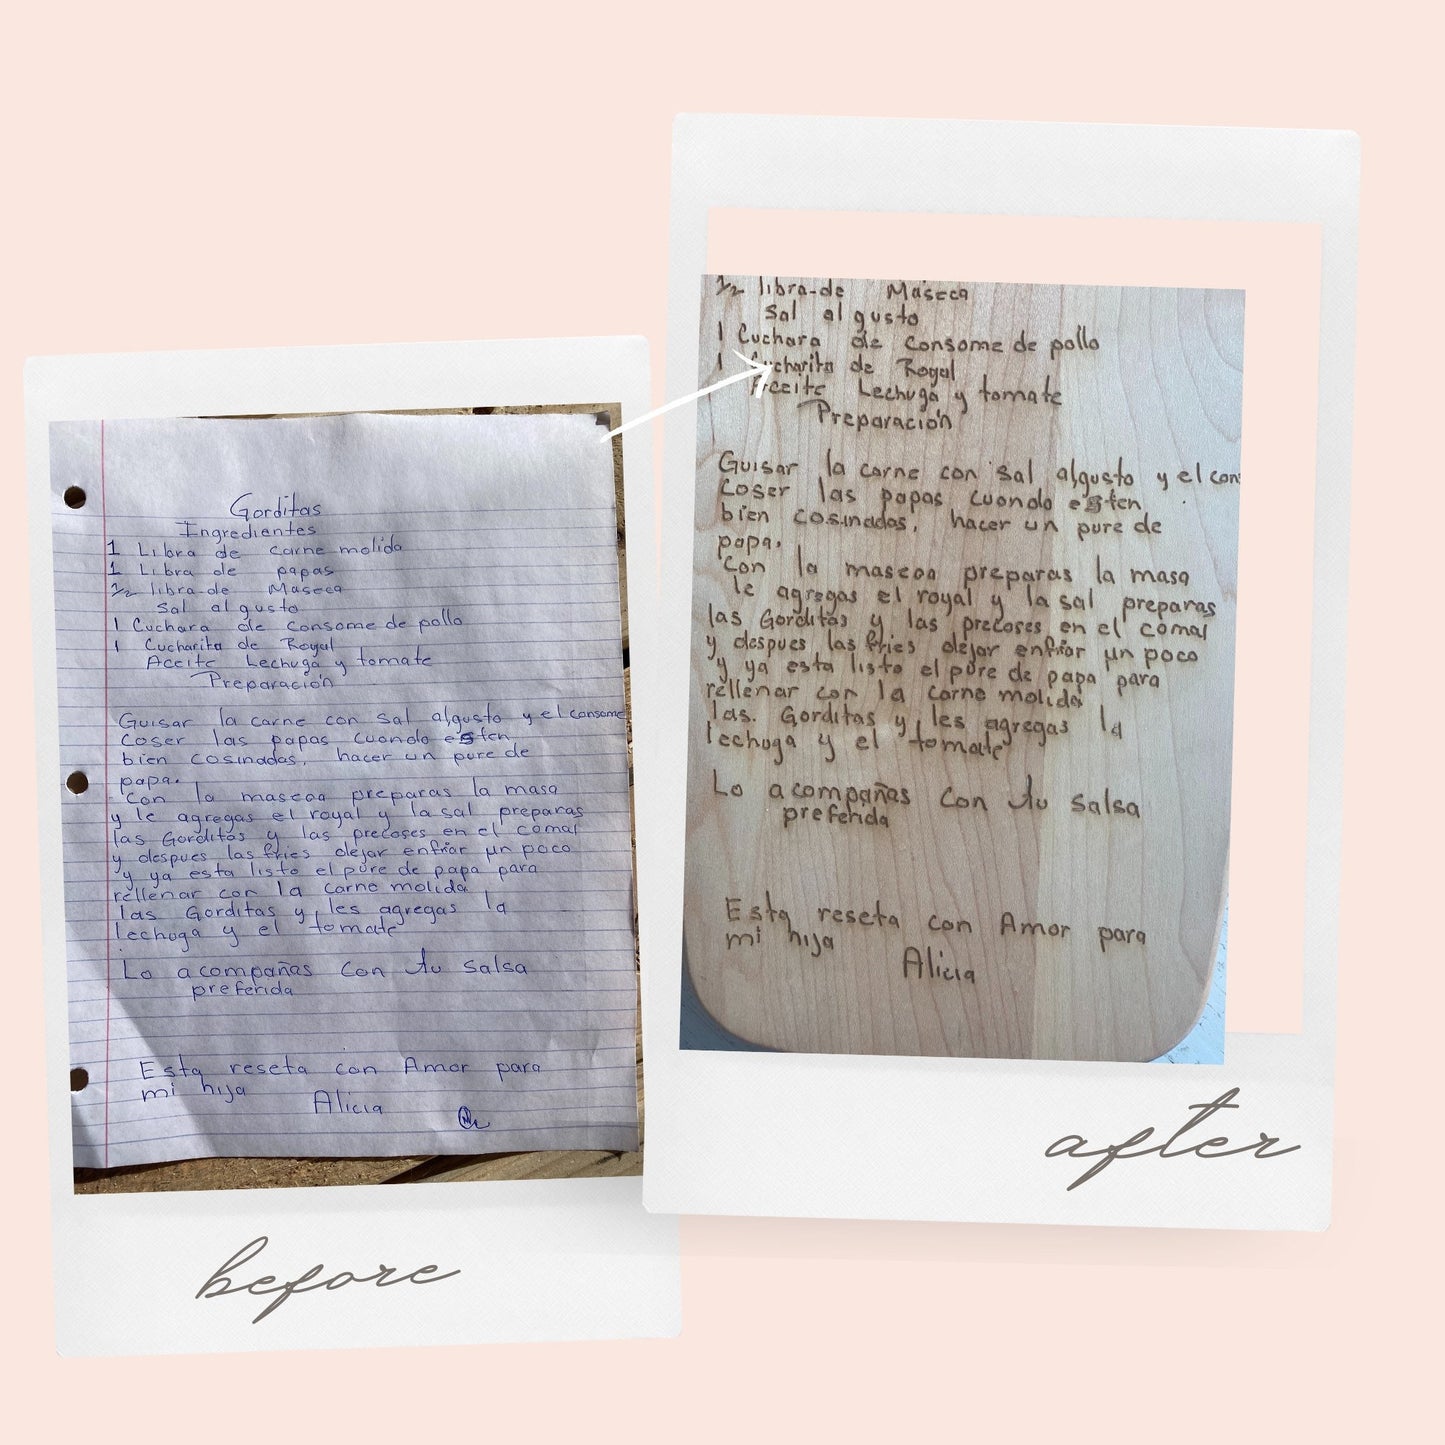 Gorditas
Ingredientes
1 Libra de carne molida
1 Libra de papas
1/2 libra de Maseca
Sal al gusto
1 Cuchara de consome de pollo
1 Cucharita de Royal
Aceite Lechuga y tomate
Preparación
Guisar la carne con sal algusto y el consome
Coser las papas cuando esten
bien cosinadas, hacer un pure de
papa.
Con la maseca preparas la masa
y le agregas el royal y la sal preparas
las Gorditas y las precoses en el comal
y despues las fries dejar enfriar un poco
y ya esta listo el pure de papa para
rellenar con la carne molida
las Gorditas y les agregas la
lechuga y el tomate
Lo acompañas con tu salsa
preferida
Esta reseta con Amor para
mi hija
Alicia
before
1/2 libra-de Maseca
Sal al gusto
1 Cuchara de consome de pollo
1 Cucharita de Royal
Aceite Lechuga y tomate
Preparación
Guisar la carne con sal algusto y el con
Coser las papas cuando esten
bien cosinadas, hacer un pure de
papa.
Con la maseca preparas la masa
le agregas el royal y la sal preparas
las Gorditas y las precoses en el comal
y despues las fries dejar enfriar un poco
y ya esta listo el pure de papa para
rellenar con la carne molida
las. Gorditas y les agregas la
lechuga y el tomate
Lo acompañas con tu salsa
preferida
Esta reseta con Amor para
mi hija
Alicia
after